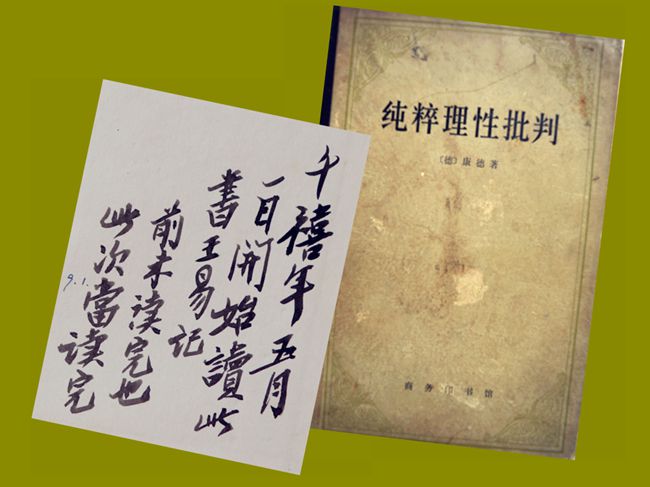 千禧年五月
一日開始讀此
書王易记
前未读完也
此次當读完
9.1.
纯粹理性批判
〔德〕康德著
商务印书馆